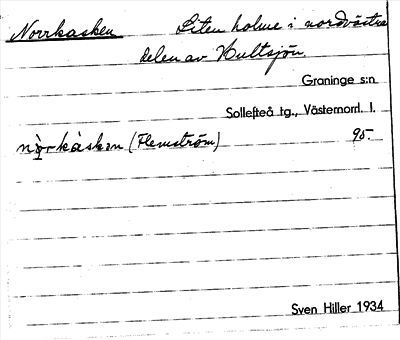 Norrkasken Liten holme i nordvästra
delen av Hultsjön
Graninge s:n
Sollefteå tg., Västernorrl. l.
nò̱rkàskən (Flemström) 95.
Sven Hiller 1934